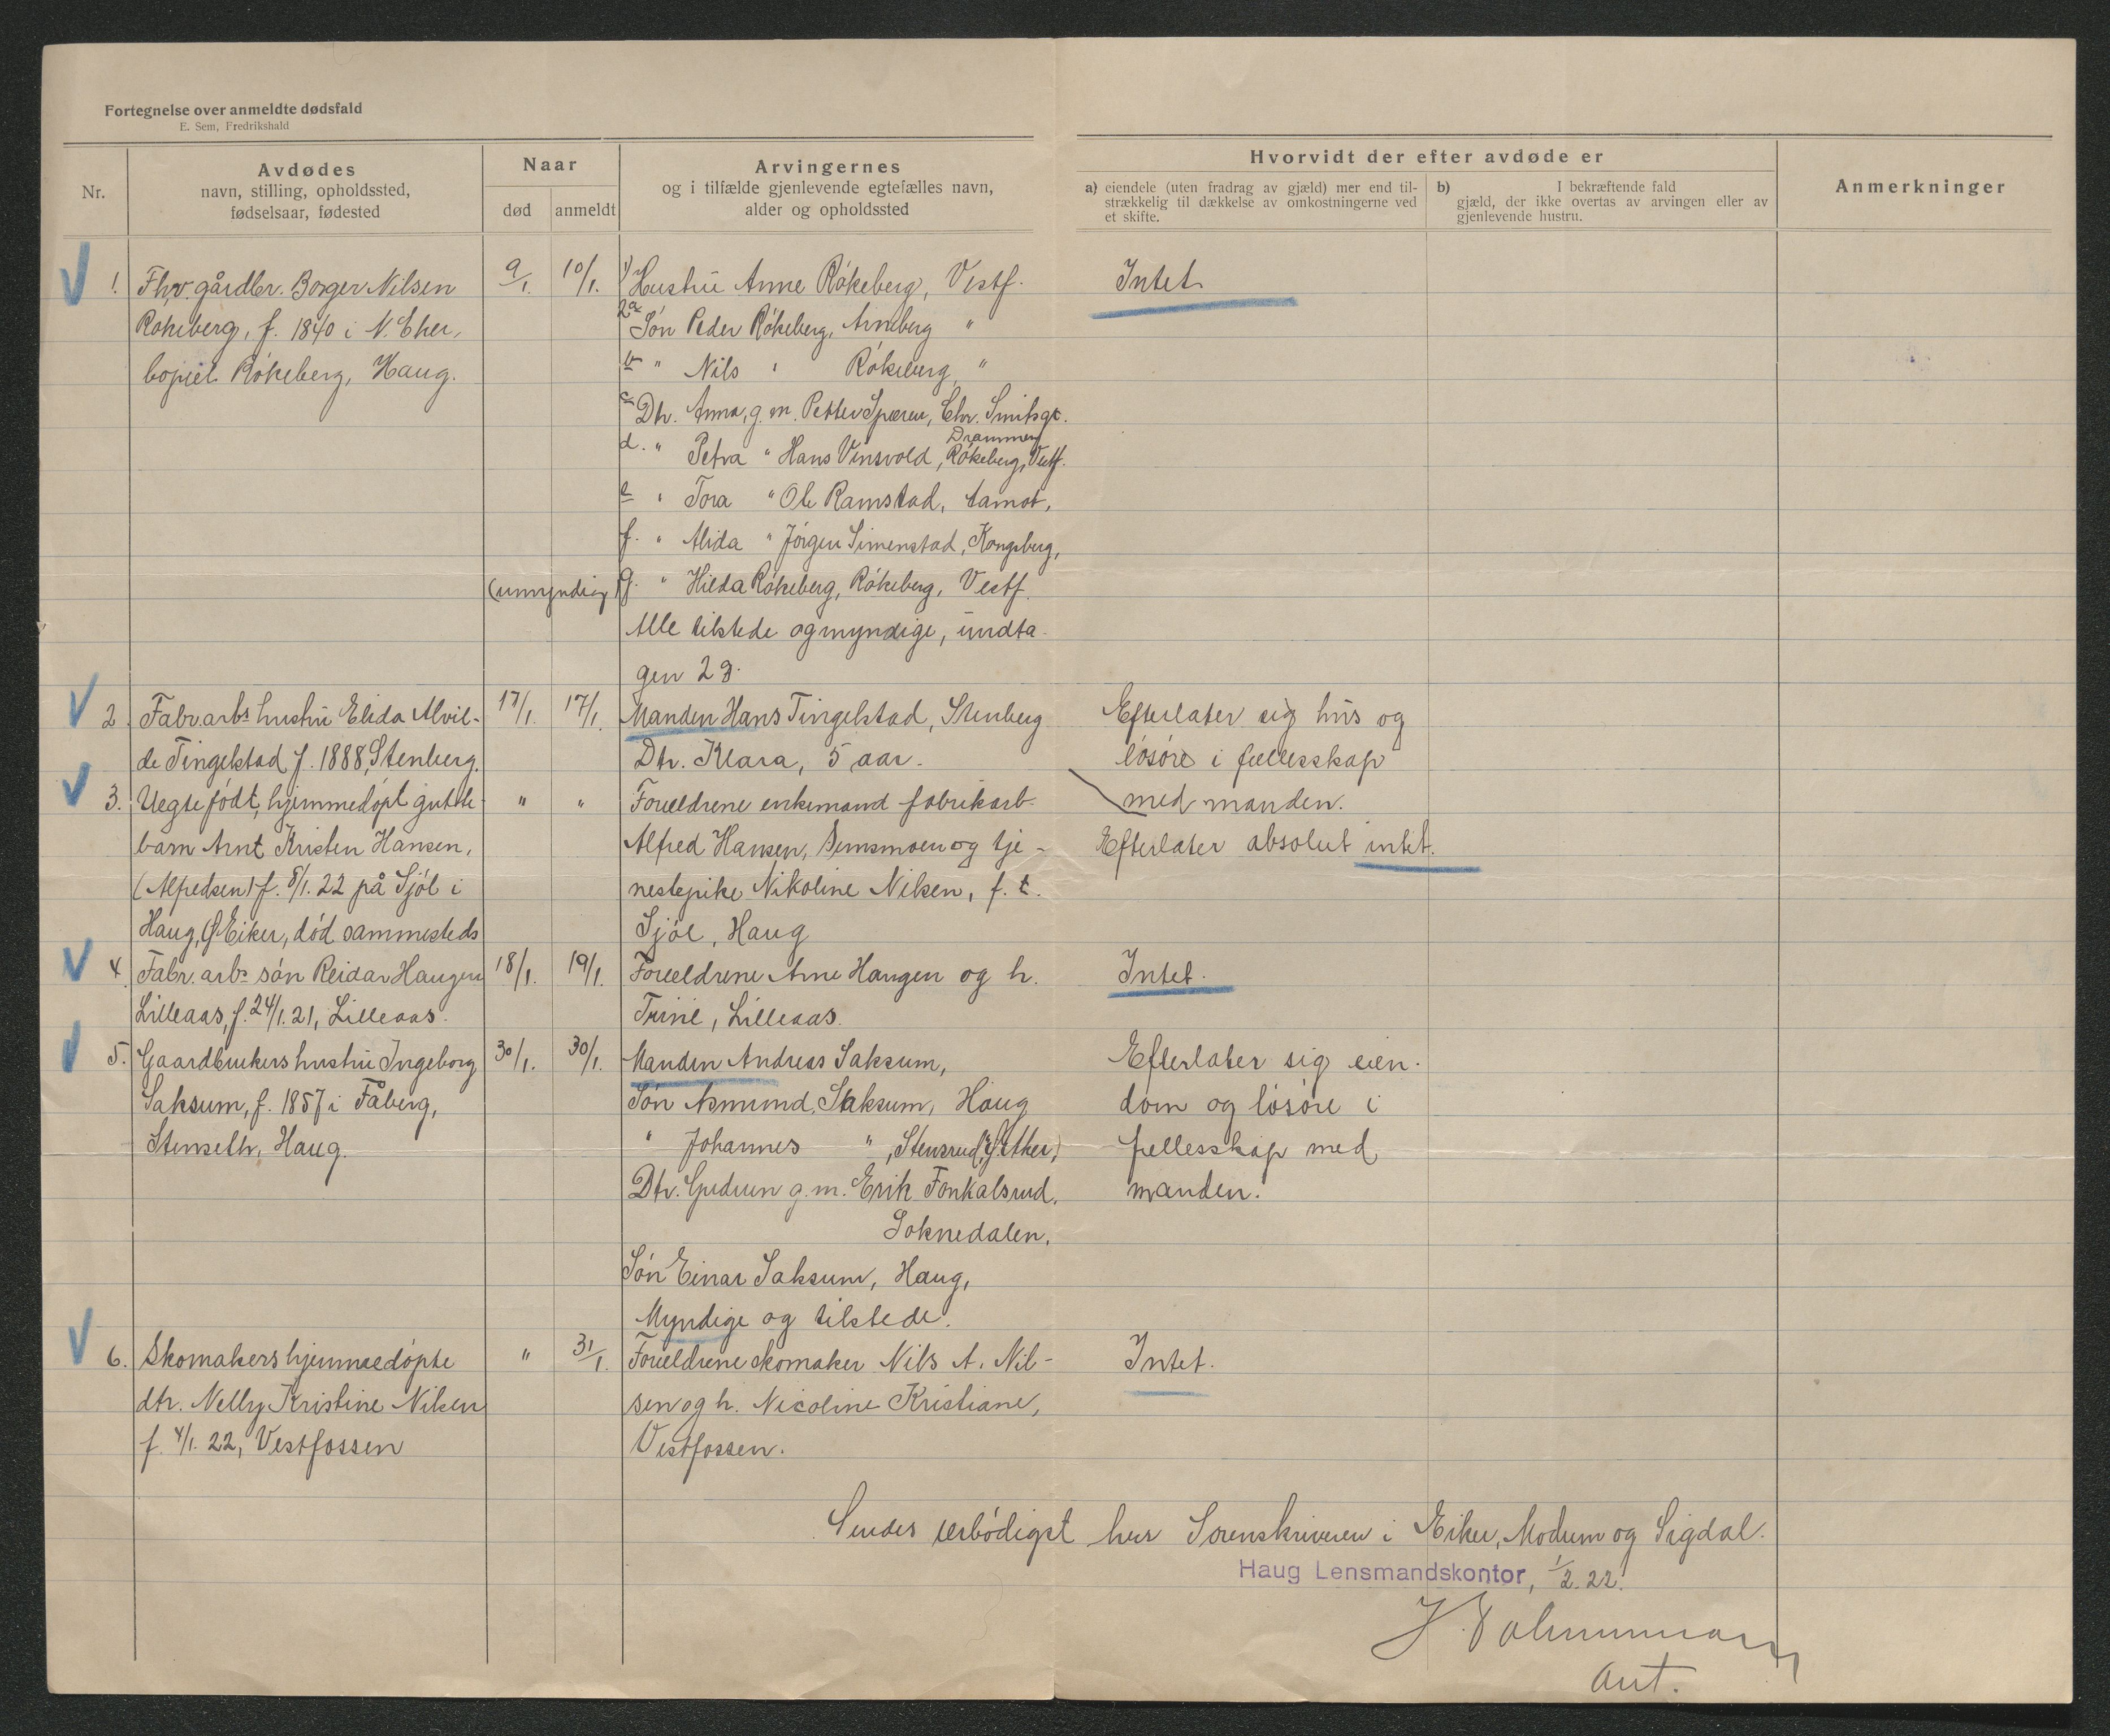 Fortegnelse over anmeldte dødsfald
E. Sem, Fredrikshald
Nr.
Avdødes
navn, stilling, opholdssted,
fødselsaar, fødested
Naar
død
anmeldt
Arvingernes
og i tilfælde gjenlevende egtefælles navn,
alder og opholdssted
Hvorvidt der efter avdøde er
a) eiendele (uten fradrag av gjæld) mer end til-
strækkelig til dækkelse av omkostningerne ved
et skifte.
b) I bekræftende fald
gjæld, der ikke overtas av arvingen eller av
gjenlevende hustru.
Anmerkninger
1. Fhv. gårdbr. Borger Nilsen
Rokeberg, f. 1840 i N. Eker,
bopæl Røkeberg, Haug.
9/1. 10/1.
1) Hustru Anne Røkeberg, Vestf.
2a Søn Peder Røkeberg, Arneberg "
b " Nils " Røkeberg, "
c Dtr. Anna, g. m. Petter Spæren, Chr. Smitsgt.
Drammen
d. " Petra " Hans Vinsvold, Røkeberg, Vestf.
e " Tora " Ole Ramstad, Aamot,
f. " Alida " Jørgen Simenstad, Kongsberg,
(umyndig) g. " Hilda Røkeberg, Røkeberg, Vestf.
Alle tilstede og myndige, undta-
gen 2 g.
Intet
2. Fabr.arbs hustru Elida Alvil-
de Tingelstad f. 1888, Stenberg.
17/1. 17/1.
Manden Hans Tingelstad, Stenberg
Dtr. Klara, 5 aar.
Efterlater sig hus og
løsøre i fællesskap
med manden.
3. Uegtefødt, hjemmedøpt gutte-
barn Arnt Kristen Hansen,
(Alfredsen) f. 8/1. 22 på Sjøl i
Haug, Ø. Eiker, død sammesteds
" "
Forældrene enkemand fabrikarb.
Alfred Hansen, Semsmoen og tje-
nestepike Nikoline Nilsen, f. t.
Sjøl, Haug
Efterlater absolut intet.
4. Fabr. arbs søn Reidar Haugen
Lilleaas, f. 24/1. 21, Lilleaas.
18/1. 19/1.
Forældrene Arne Haugen og h.
Trine, Lilleaas.
Intet.
5. Gaardbrukers hustru Ingeborg
Saksum, f. 1857 i Fåberg,
Stenseth, Haug.
30/1. 30/1.
Manden Andreas Saksum,
Søn Asmund Saksum, Haug
" Johannes " , Stensrud, Ø. Aker,
Dtr. Gudrun g. m. Erik Fonkalsrud,
Soknedalen,
Søn Einar Saksum, Haug,
Myndige og tilstede.
Efterlater sig eien-
dom og løsøre i
fællesskap med
manden.
6. Skomakers hjemmedøpte
dtr. Nelly Kristine Nilsen
f. 4/1. 22, Vestfossen
" 31/1.
Forældrene skomaker Nils A. Nil-
sen og h. Nicoline Kristiane,
Vestfossen.
Intet.
Sendes ærbødigst herr Sorenskriveren i Eiker, Modum og Sigdal.
Haug Lensmandskontor, 1/2. 22.